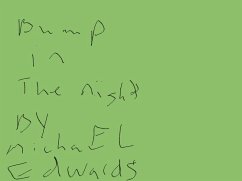 Bump
in
The night
BY
michaEL
Edwards